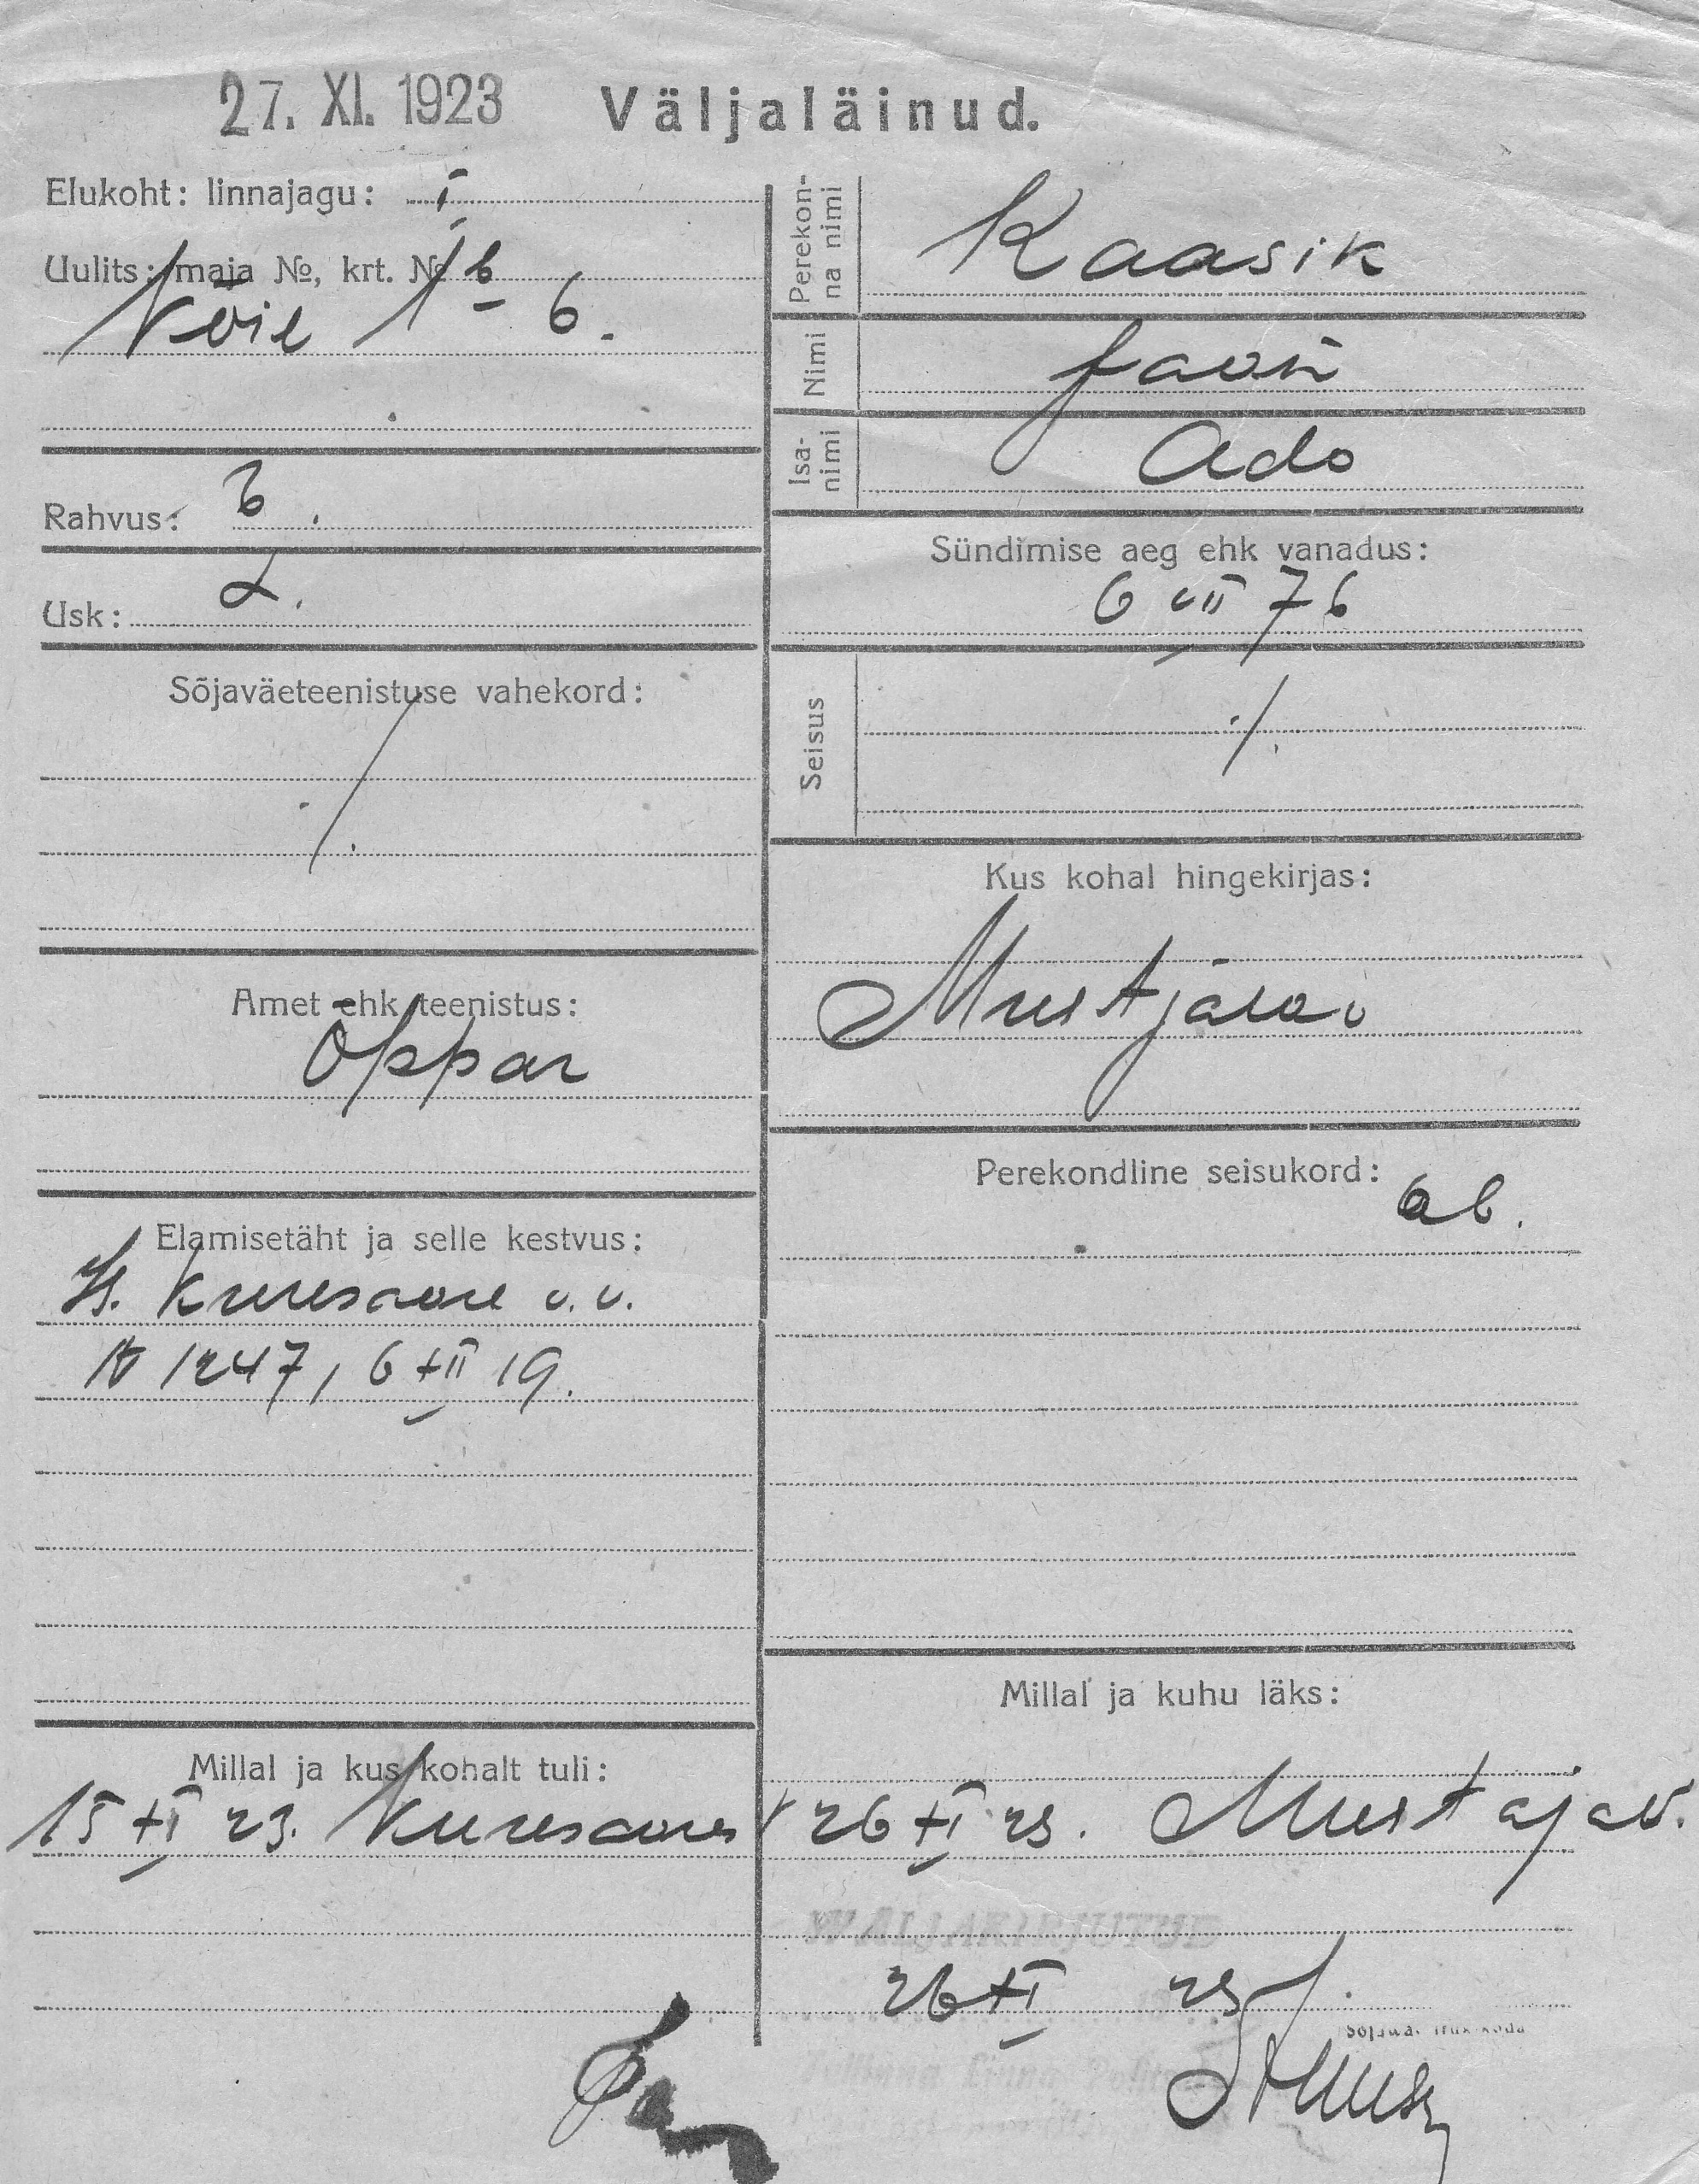 27. XI. 1923
Väljaläinud.
Elukoht: linnajagu: I
Uulits: maja №, krt. №
Võie 1b - 6.
Rahvus: E.
Usk: L.
Sõjaväeteenistuse vahekord:
./.
Amet ehk teenistus:
Õppar
Elamisetäht ja selle kestvus:
Kuresaare v. v.
№ 1247, 6 XII 19.
Millal ja kus kohalt tuli:
15 XI 23. Kuresaares
Perekonna nimi
Kaasik
Nimi
Jaan
Isanimi
Ado
Sündimise aeg ehk vanadus:
6 VII 76
Seisus
./.
Kus kohal hingekirjas:
Mustjala v
Perekondline seisukord:
ab.
Millal ja kuhu läks:
26 XI 23. Mustajav.
WALJAKIRJUTUD
26 XI 23
Sõjaw. trük-koda
Tallinna linna